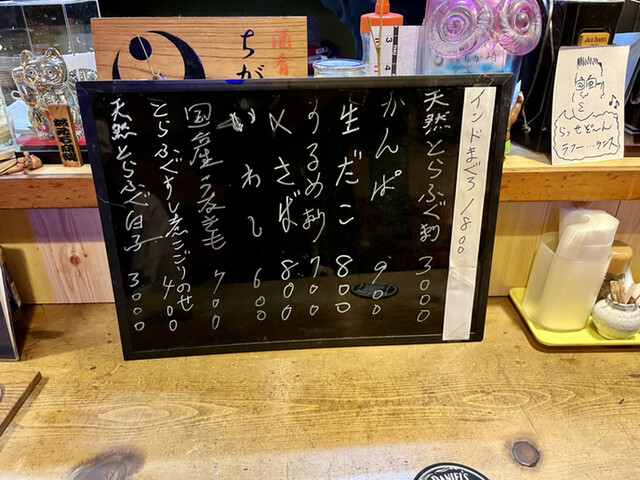 インドまぐろ 1800
天然とらふぐ刺 3000
かんぱ 900
生だこ 800
するめ刺 700
〆さば 800
いわし 600
国産うなぎ 700
とらふぐすし煮こごりのせ 400
天然とらふぐ白子 3000
酒肴
ちが
らっせどーん
ラフー…タンス
DANIEL'S